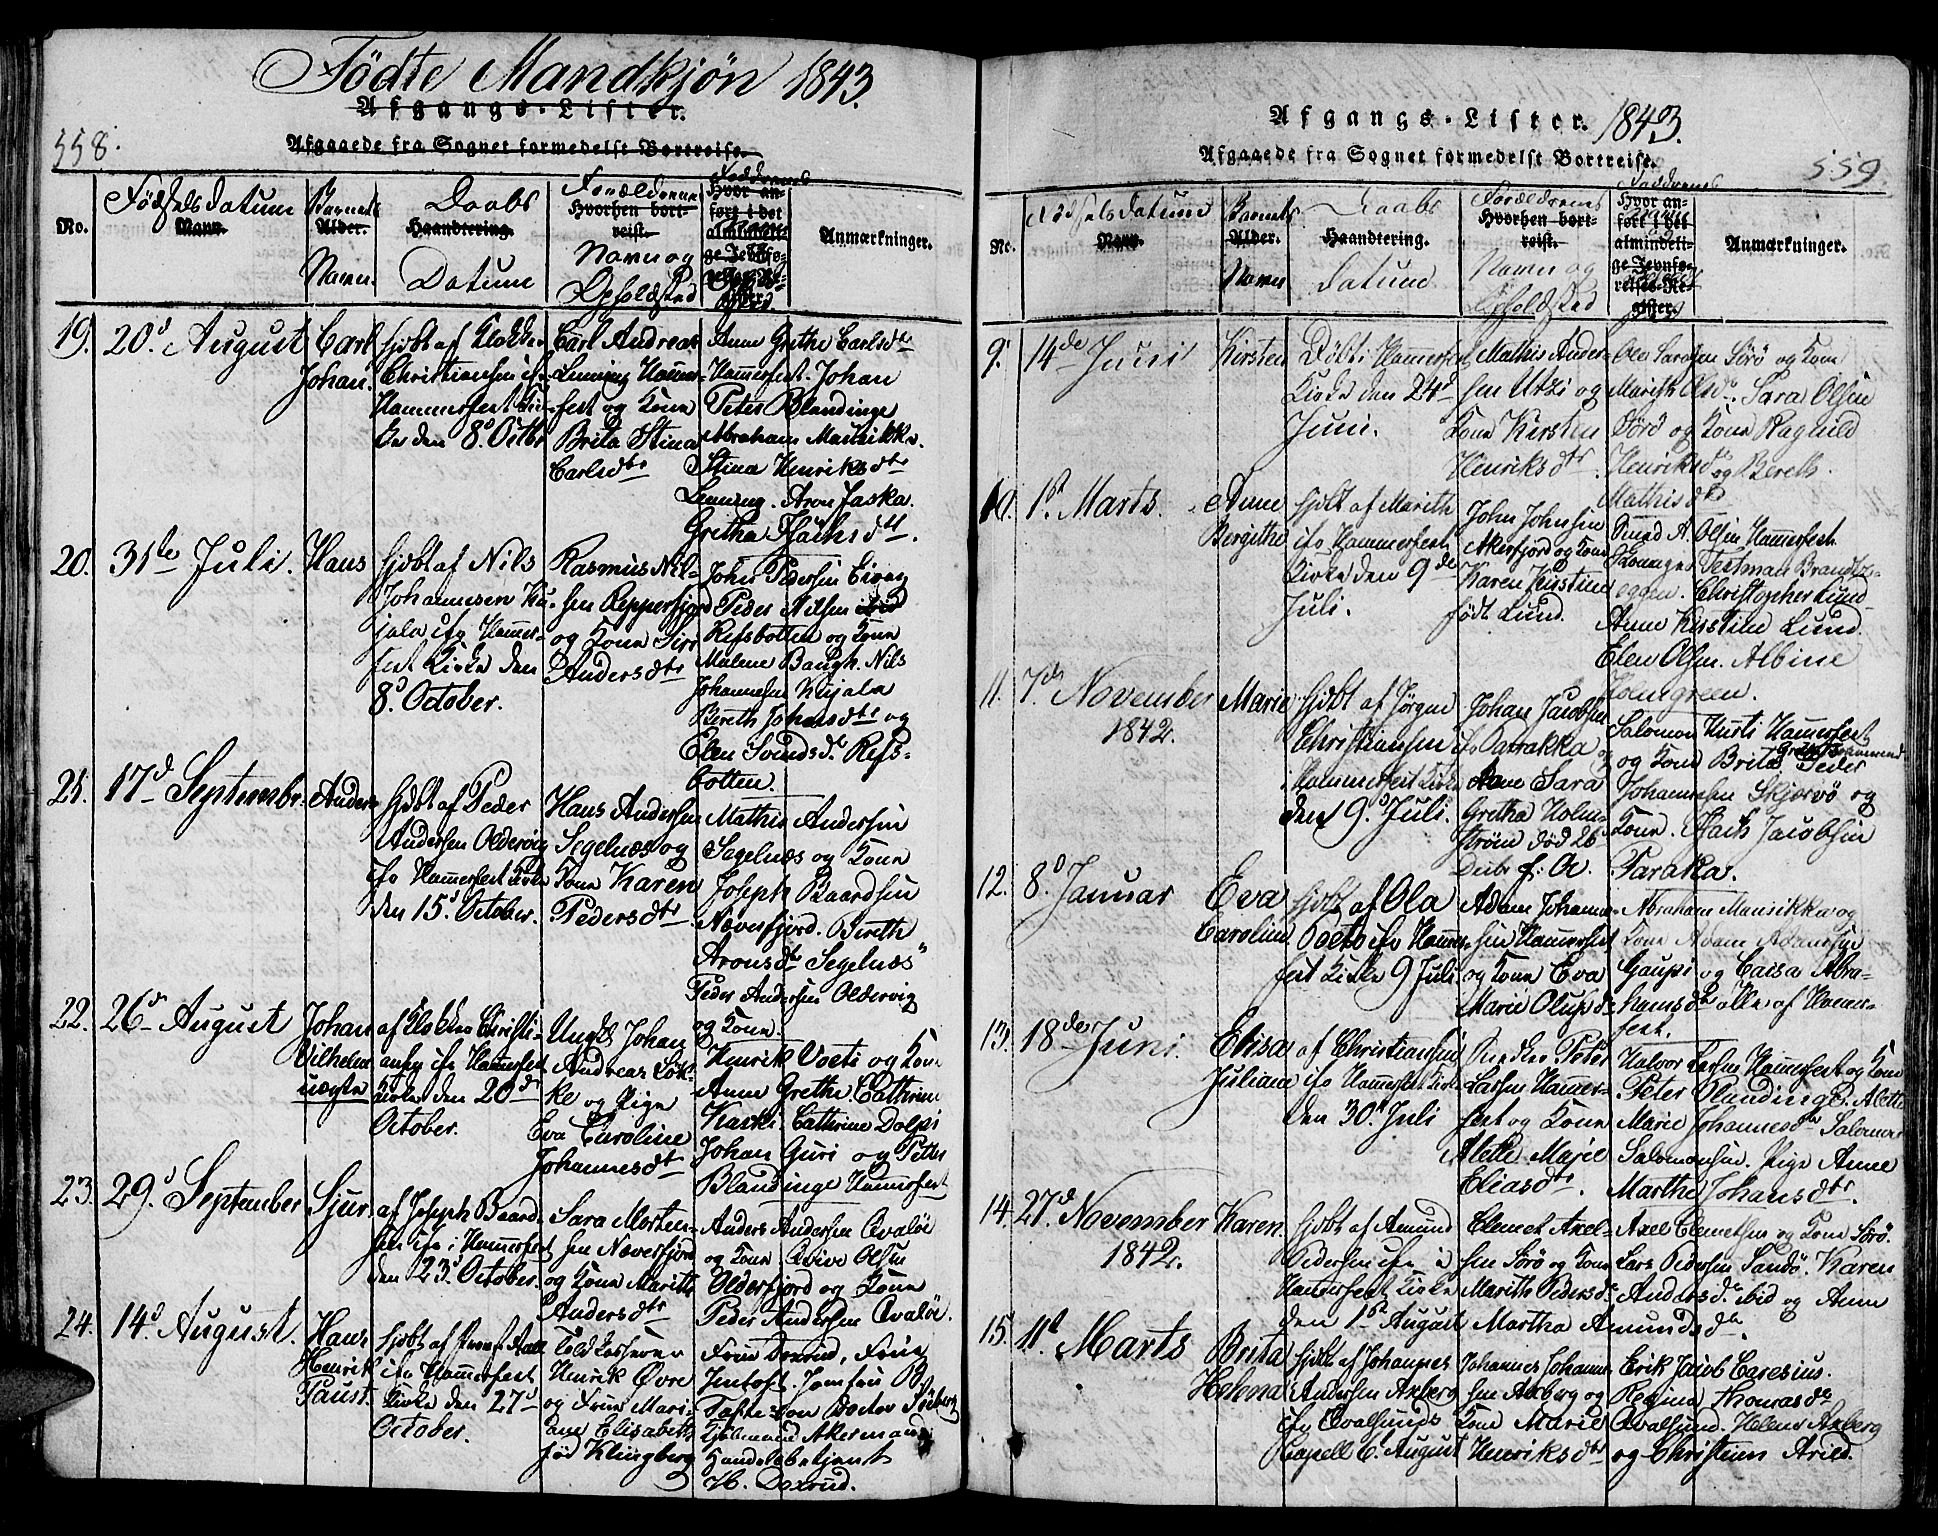 Födte Mandkjøn 1843.
Afgangs-Lister.
558.
Afgaaede fra Sognet formedelst Bortreise.
No.
Födselsdatum
Navn.
Barnets
Alder.
Navn.
Daabs
Haandtering.
Datum
Forældrenes
Hvorhen bort-
reist.
Navn og
Opholdsted
Faddrenes
Hvor an-
ført i det
almindeli-
ge Jevnfø-
relses-Re-
gister.
Anmærkninger.
19. 20d August
Carl
Johan.
hjdbt af Klokker
Christiansen ifr
Hammerfest Kir-
ke den 8d Octbr
Carl Andreas
Lenning Hammer-
fest og Kone
Brita Stina
Carlsdtr
Anne Grethe Carlsdtr
Hammerfest. Johan
Peter Blandinge
Abraham Mansikka.
Stina Henriksdtr
Lenning. Aron Jaska.
Gretha Isachsdtr.
20. 31te Juli.
Hans
hjdbt af Nils
Johannesen Ku-
jala ifr Hammer-
fest Kirke den
8d October.
Rasmus Nil-
sen Repperfjord
og Kone Siri
Andersdtr
John Pedersen Eivag
Peder Nilsen ibid
Refsbotten og Kone
Malene Baugh. Nils
Johannesen Kujala
Bereth Johansdtr og
Elen Svendsdr Refs-
botten.
21. 17d Septembr.
Anders
hjdbt af Peder
Andersen Oldervig
ifr Hammerfest Kirke
den 15d October.
Hans Andersen
Segelnæs og
Kone Karen
Pedersdtr
Mathis Andersen
Segelnæs og Kone
Joseph Baardsen
Næverfjord. Bereth
Aronsdtr Segelnæs
Peder Andersen Oldervig
og Kone.
22. 26d August
Johan
Vilhelm
uægte
af Klokker Christi-
ansen ifr Hammerfest
Kirke den 20de
October.
Ungk. Johan
Andreas Lök-
ke og Pige
Eva Caroline
Johannesdtr
Henrik Voeti og Kone
Anne Grethe Cathrine
Kaski. Cathrine Dolpi
Johan Guri og Petter
Blandinge Hammerfest
23. 29d September
Sjur.
af Joseph Baard-
sen ifr i Hammerfest
den 23d October.
Sara Morten-
sen Næverfjord
og Kone Marith
Andersdtr
Anders Andersen Qvaløe
og Kone Olsen
Olderfjord og Kone
Peder Andersen Qvaløe.
24. 14d August.
Hans
Henrik
Faust.
hjdbt af Provst Aall
ifr Hammerfest
Kirke den 27d
October.
Toldkasserer
Henrik Øvre
og Frue Mari-
ane Elisabeth
fød Klingberg
Frue Doxrud, Frue
Jentoft. Jomfru B.
Tofte
Akermand
Handelsbetjent
H. Doxrud.
Afgangs-Lister. 1843.
Afgaaede fra Sognet formedelst Bortreise.
559
No.
Födselsdatum
Navn.
Barnets
Alder.
Navn
Daabs
Haandtering.
Datum
Forældrenes
Hvorhen bort-
reist.
Navn og
Opholdsted
Faddrenes
Hvor an-
ført i det
almindeli-
ge Jevnfø-
relses-Re-
gister.
Anmærkninger.
9. 14de Juni
Kirsten
Döbt i Hammerfest
Kirke den 24d
Juni.
Mathis Ander-
sen Utsi og
Kone Kirsten
Henriksdtr
Ole Sarasen Sörö og Kone
Marith Olsdr. Sara Olsen
Sörö og Kone Ragnild
Henriksdr og Bereth
Mathisdtr
10. 1st Marts.
Anne
Bergithe
hjdbt af Marith
ifr Hammerfest
Kirke den 9de
Juli.
John Johnsen
Akerfjord og Kone
Karen Kirstine
född Lund.
Smed A. Olsen Hammerfest.
Testman Brandtz-
eggen. Christopher Lund
Anne Kirstine Lund.
Elen Olsen. Albine
Holmgreen.
11. 7de November
1842.
Marie
hjdbt af Jörgen
Christiansen ifr
Hammerfest Kirke
den 9d Juli.
Johan Jacobsen
Parrakka og
Kone Sara
Gretha Holm-
ström död 26
Debr f. A.
Salomon Kurti Hammerfest
og Kone Brita Peder
Johannesen Skjervö og
Kone. Isach Jacobsen
Paraka.
12. 8d Januar
Eva
Caroline
hjdbt af Ola
Voeto ifr Hammer-
fest Kirke 9 Juli
Adam Johanne-
sen Hammerfest
og Kone Eva
Marie Olupsdr
Abraham Mansikka og
Kone Adam Adamsen
Gaupi og Caisa Abra-
hamsdtr alle af Hammer-
fest.
13. 18de Juni.
Elisa
Juliane
af Christiansen
ifr Hammerfest Kirke
den 30d Juli
Snedker Peter
Larsen Hammer-
fest og Kone
Alette Marie
Eliasdtr.
Halvor Larsen Hammerfest og Kone
Peter Blandinge. Alette
Marie Johannesdtr Salomon
Salomonsen. Pige Anne
Marthe Johansdtr.
14. 27d November
1842.
Karen.
hjdbt af Amund
Pedersen ifr i
Hammerfest Kirke
den 1st August
Clemet Axel-
sen Sörö og Kone
Marith Pedersdr
Axel Clemetsen og Kone Sörö.
Lars Pedersen Sandö. Karen
Andersdr ibid og Anne
Martha Amundsdr.
15. 11d Marts
Brita
Helena
hjdbt af Johannes
Andersen Axberg
ifr Qvalsunds
Capell 6d August
Johannes Johanne-
sen Axberg og
Kone Marie
Henriksdtr
Erik Jacob Caresius.
Regina Thomasdr
Qvalsund. Helena Axberg
og Christian Arild.